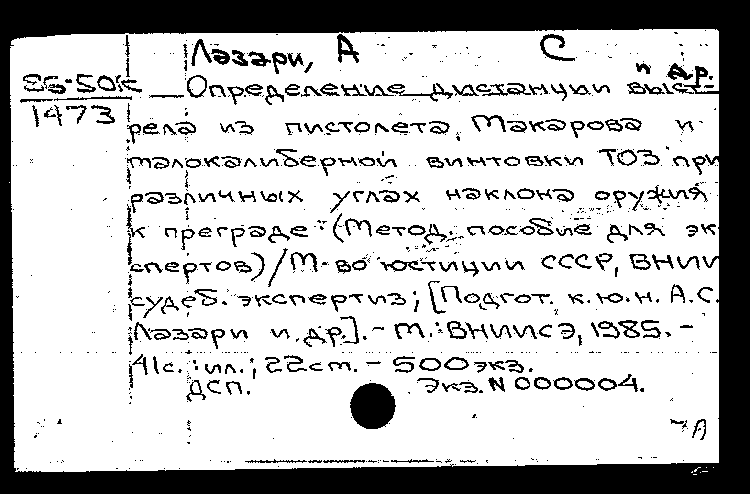 Лазари, А С
и др.
86-50к
1473
Определение дистанции выст-
рела из пистолета Макарова и
малокалиберной винтовки ТОЗ при
различных углах наклона оружия
к преграде: (Метод. пособие для эк
спертов)/М-во юстиции СССР, ВНИИ
судеб. экспертиз; [Подгот. к.ю.н. А.С.
Лазари и др.]. - М.: ВНИИСЭ, 1985. -
41с. : ил.; 22см. - 500экз.
ДСП. Экз. N 000004.